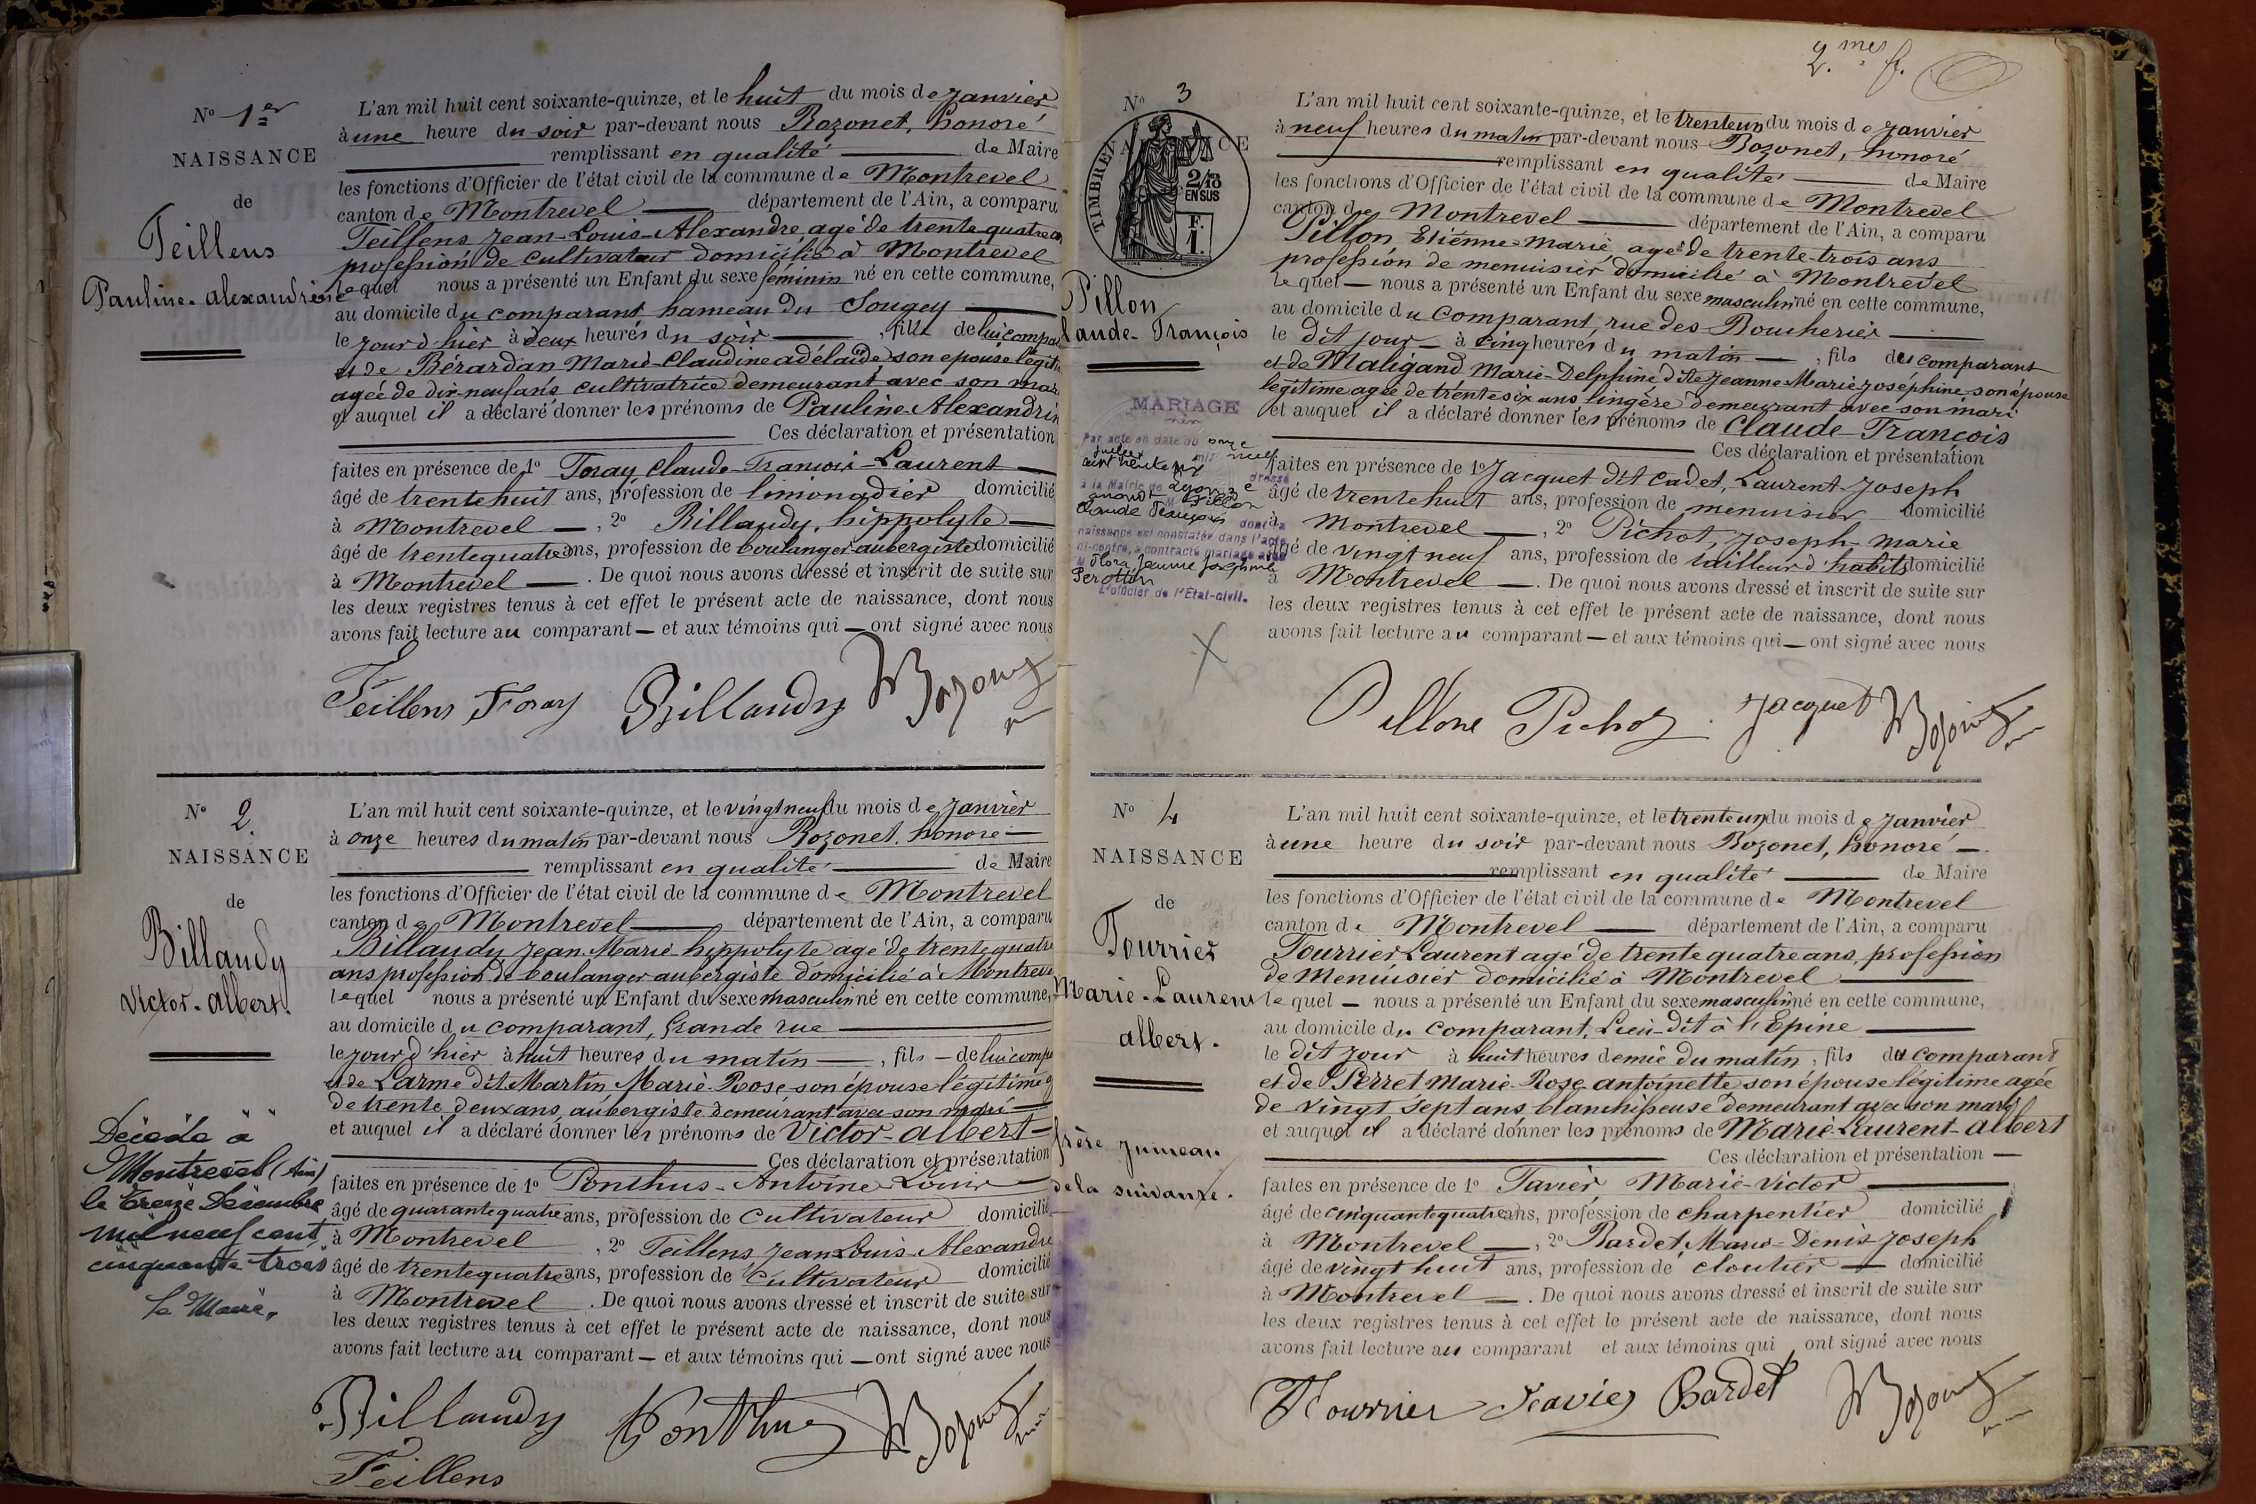 Nº 1er
NAISSANCE
de
Feillens
Pauline-Alexandrine
L'an mil huit cent soixante-quinze, et le huit du mois de Janvier
à une heure du soir par-devant nous Bozonet, honoré
remplissant en qualité de Maire
les fonctions d'Officier de l'état civil de la commune de Montrevel
canton de Montrevel département de l'Ain, a comparu
Feillens Jean-Louis-Alexandre agé de trente quatre ans
profession de cultivateur domicilié à Montrevel
lequel nous a présenté un Enfant du sexe féminin né en cette commune,
au domicile du comparant hameau du Sougey
le jour d'hier à deux heures du soir, fille de lui comparant
et de Bérardan Marie-Claudine adélaïde, son épouse légitime
agée de dix-neuf ans cultivatrice demeurant avec son mari
et auquel il a déclaré donner les prénoms de Pauline-Alexandrine
Ces déclaration et présentation
faites en présence de 1º Foray Claude-François-Laurent
âgé de trente huit ans, profession de limonadier domicilié
à Montrevel, 2º Billaudy, hippolyte
âgé de trente quatre ans, profession de boulanger-aubergiste domicilié
à Montrevel. De quoi nous avons dressé et inscrit de suite sur
les deux registres tenus à cet effet le présent acte de naissance, dont nous
avons fait lecture au comparant et aux témoins qui ont signé avec nous
Feillens Foray Billaudy Bozonet
Nº 2.
NAISSANCE
de
Billaudy
Victor-albert.
Décédé à
Montrevel (Ain)
le treize Décembre
mil neuf cent
cinquante trois
Le Maire,
L'an mil huit cent soixante-quinze, et le vingt neuf du mois de Janvier
à onze heures du matin par-devant nous Bozonet, honoré
remplissant en qualité de Maire
les fonctions d'Officier de l'état civil de la commune de Montrevel
canton de Montrevel département de l'Ain, a comparu
Billaudy Jean-Marie-hippolyte agé de trente quatre
ans profession de boulanger aubergiste domicilié à Montrevel
lequel nous a présenté un Enfant du sexe masculin né en cette commune,
au domicile du comparant, Grande rue
le jour d'hier à huit heures du matin, fils de lui comparant
et de Larme dit Martin Marie-Rose son épouse légitime agée
de trente deux ans, aubergiste demeurant avec son mari
et auquel il a déclaré donner les prénoms de Victor-albert
Ces déclaration et présentation
faites en présence de 1º Ponthus-Antoine Louis
âgé de quarante quatre ans, profession de cultivateur domicilié
à Montrevel, 2º Feillens Jean-Louis-Alexandre
âgé de trente quatre ans, profession de cultivateur domicilié
à Montrevel. De quoi nous avons dressé et inscrit de suite sur
les deux registres tenus à cet effet le présent acte de naissance, dont nous
avons fait lecture au comparant et aux témoins qui ont signé avec nous
Billaudy Ponthus Bozonet
Feillens
2.mes f.
Nº 3
TIMBRE
2/10
EN SUS
F.
1.
Pillon
Claude-François
MARIAGE
Par acte en date du onze
juillet mil neuf
cent trente six dressé
à la Mairie de Oyonnax
M. Pillon
Claude François dont la
naissance est constatée dans l'acte
ci-contre, a contracté mariage avec
M Flora Jeanne Joséphine
Perottin
L'officier de l'État-civil.
L'an mil huit cent soixante-quinze, et le trente un du mois de Janvier
à neuf heures du matin par-devant nous Bozonet, honoré
remplissant en qualité de Maire
les fonctions d'Officier de l'état civil de la commune de Montrevel
canton de Montrevel département de l'Ain, a comparu
Pillon, Etienne-Marie, agé de trente-trois ans
profession de menuisier domicilié à Montrevel
lequel nous a présenté un Enfant du sexe masculin né en cette commune,
au domicile du comparant, rue des Boucheries
le dit jour à cinq heures du matin, fils du comparant
et de Maligand Marie-Delphine dite Jeanne-Marie-Joséphine son épouse
légitime agée de trente six ans lingère demeurant avec son mari
et auquel il a déclaré donner les prénoms de Claude-François
Ces déclaration et présentation
faites en présence de 1º Jacquet dit cadet, Laurent-Joseph
âgé de trente huit ans, profession de menuisier domicilié
à Montrevel, 2º Pichot, Joseph-Marie
âgé de vingt neuf ans, profession de tailleur d'habits domicilié
à Montrevel. De quoi nous avons dressé et inscrit de suite sur
les deux registres tenus à cet effet le présent acte de naissance, dont nous
avons fait lecture au comparant et aux témoins qui ont signé avec nous
Pillon Pichot Jacquet Bozonet
Nº 4
NAISSANCE
de
Fourrier
Marie-Laurent
albert.
frère jumeau
de la suivante.
L'an mil huit cent soixante-quinze, et le trente un du mois de Janvier
à une heure du soir par-devant nous Bozonet, honoré
remplissant en qualité de Maire
les fonctions d'Officier de l'état civil de la commune de Montrevel
canton de Montrevel département de l'Ain, a comparu
Fourrier Laurent agé de trente quatre ans, profession
de Menuisier domicilié à Montrevel
lequel nous a présenté un Enfant du sexe masculin né en cette commune,
au domicile du comparant, Lieu-dit à l'Epine
le dit jour à huit heures demie du matin, fils du comparant
et de Perret Marie-Rose antoinette son épouse légitime agée
de vingt sept ans blanchisseuse demeurant avec son mari
et auquel il a déclaré donner les prénoms de Marie-Laurent-albert
Ces déclaration et présentation
faites en présence de 1º Favier Marie-Victor
âgé de cinquante quatre ans, profession de charpentier domicilié
à Montrevel, 2º Bardet, Marie-Denis-Joseph
âgé de vingt huit ans, profession de cloutier domicilié
à Montrevel. De quoi nous avons dressé et inscrit de suite sur
les deux registres tenus à cet effet le présent acte de naissance, dont nous
avons fait lecture au comparant et aux témoins qui ont signé avec nous
Fourrier Favier Bardet Bozonet